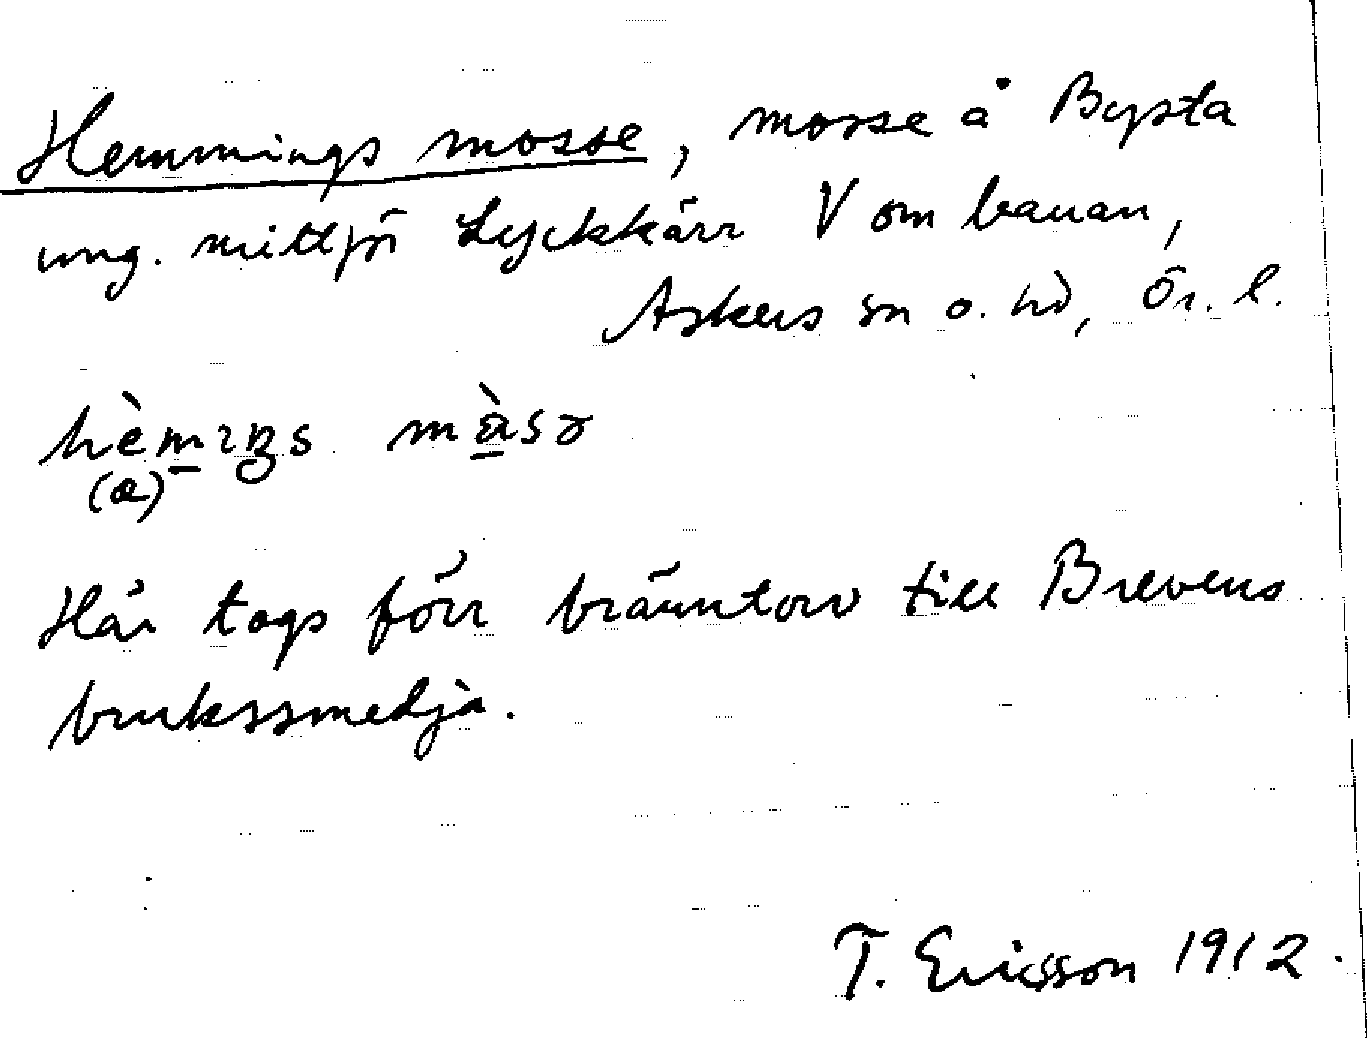 Hemmings mosse, mosse å Bysta
ung. mittför Lyckkärr V om banan,
Askers sn o. hd, Ör. l.
hèmıŋs måsə
(æ)
Här togs förr bränntorv till Brevens
brukssmedja.
T. Ericsson 1912.